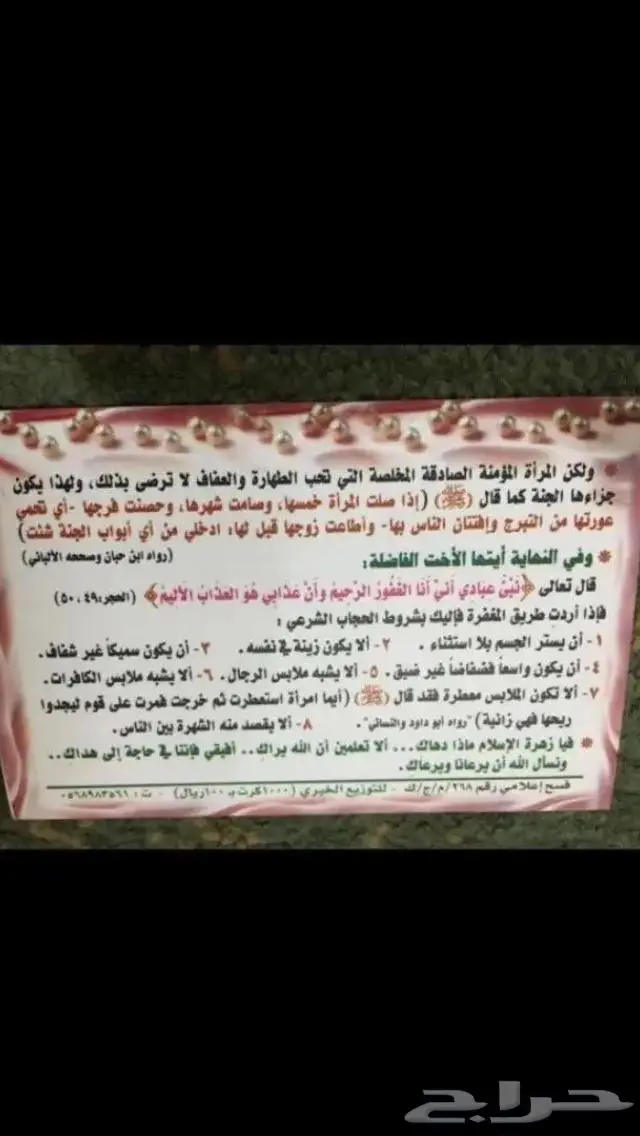 * ولكن المرأة المؤمنة الصادقة المخلصة التي تحب الطهارة والعفاف لا ترضى بذلك، ولهذا يكون
جزاءها الجنة كما قال (ﷺ) (إذا صلت المرأة خمسها، وصامت شهرها، وحصنت فرجها -أي تحمي
عورتها من التبرج وإفتتان الناس بها- وأطاعت زوجها قيل لها: ادخلي من أي أبواب الجنة شئت)
(رواه ابن حبان وصححه الألباني)
* وفي النهاية أيتها الأخت الفاضلة:
قال تعالى ﴿نَبِّئْ عِبَادِي أَنِّي أَنَا الْغَفُورُ الرَّحِيمُ وَأَنَّ عَذَابِي هُوَ الْعَذَابُ الْأَلِيمُ﴾ (الحجر:٤٩، ٥٠)
فإذا أردت طريق المغفرة فإليك بشروط الحجاب الشرعي :
١- أن يستر الجسم بلا استثناء . ٢- ألا يكون زينة في نفسه. ٣- أن يكون سميكاً غير شفاف.
٤- أن يكون واسعاً فضفاضاً غير ضيق. ٥- ألا يشبه ملابس الرجال. ٦- ألا يشبه ملابس الكافرات.
٧- ألا تكون الملابس معطرة فقد قال (ﷺ) (أيما امرأة استعطرت ثم خرجت فمرت على قوم ليجدوا
ريحها فهي زانية) "رواه أبو داود والنسائي". ٨- ألا يقصد منه الشهرة بين الناس.
* فيا زهرة الإسلام ماذا دهاك... ألا تعلمين أن الله يراك.. أفيقي فإننا في حاجة إلى هداك..
ونسأل الله أن يرعانا ويرعاك.
فسح إعلامي رقم ٢٦٨/م/ج/ك - للتوزيع الخيري (١٠٠٠كرت بـ ١٠٠ريال) - ت: ٠٥٦٨٩٨٣٥٦١
حراج